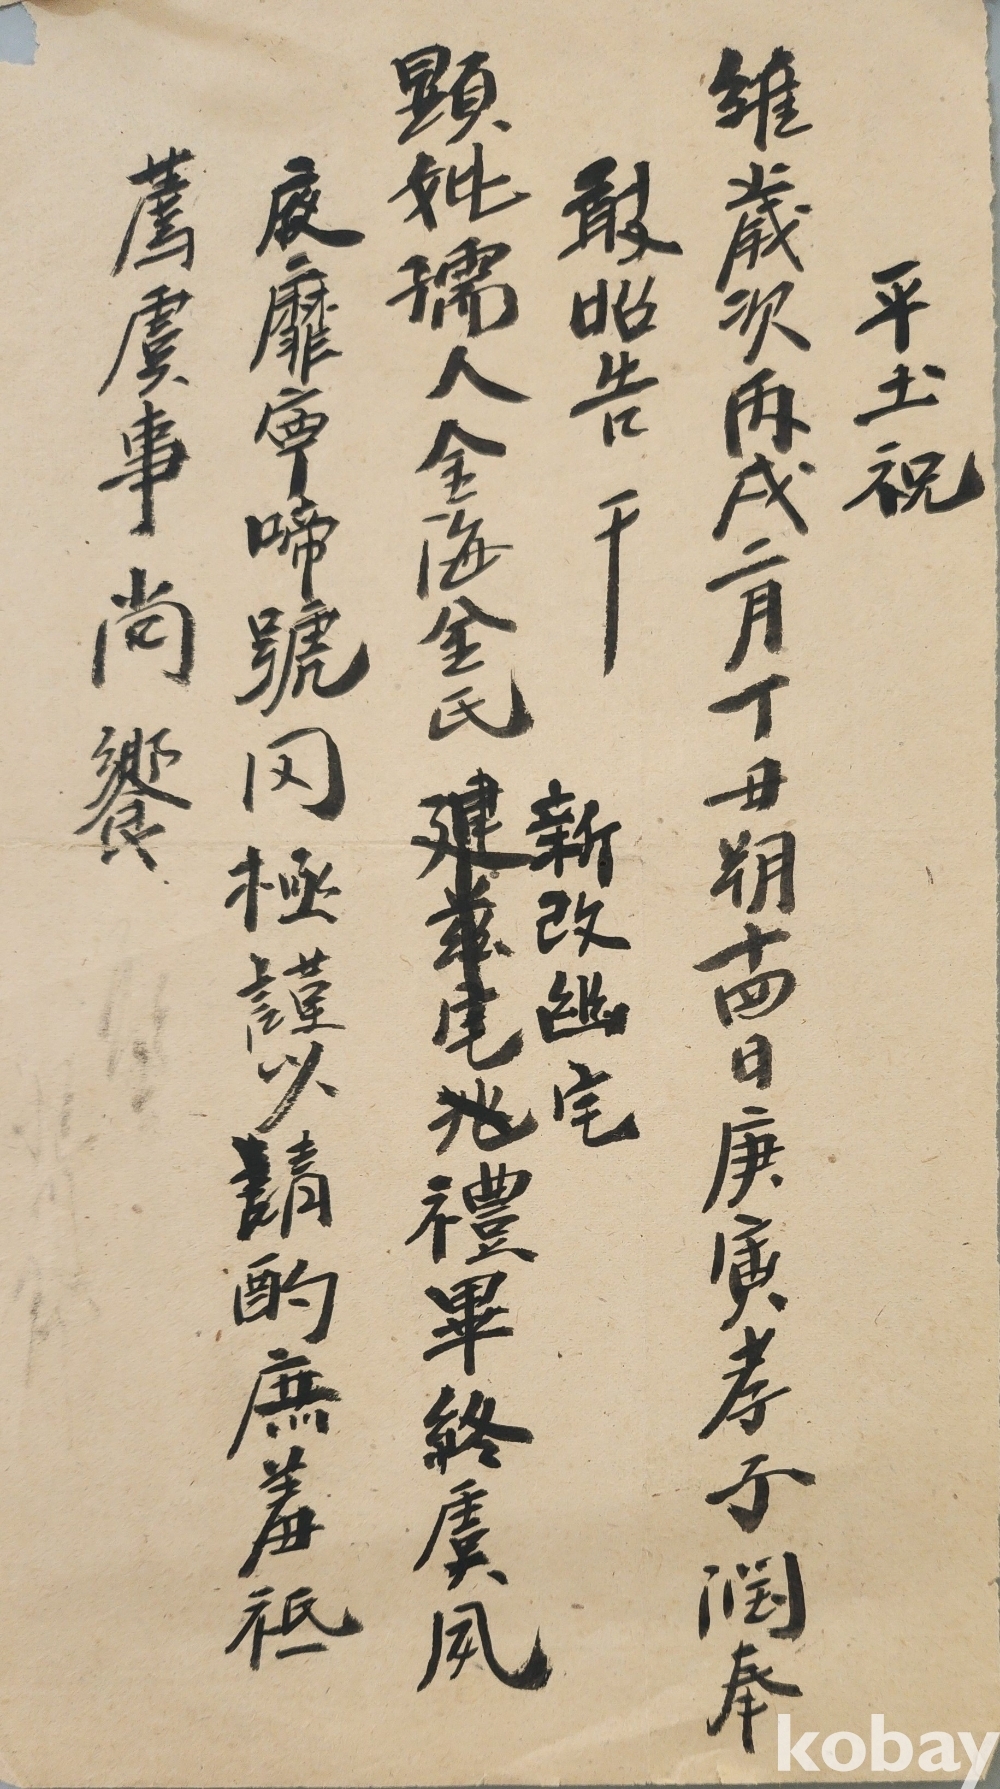 平土祝
維歲次丙戌二月丁丑朔十四日庚寅孝子潤奉
敢昭告于
顯妣孺人金海金氏
新改幽宅
建玆宅兆禮畢終虞夙
夜靡寧啼號罔極謹以請酌庶羞祗
薦虞事尚饗
kobay